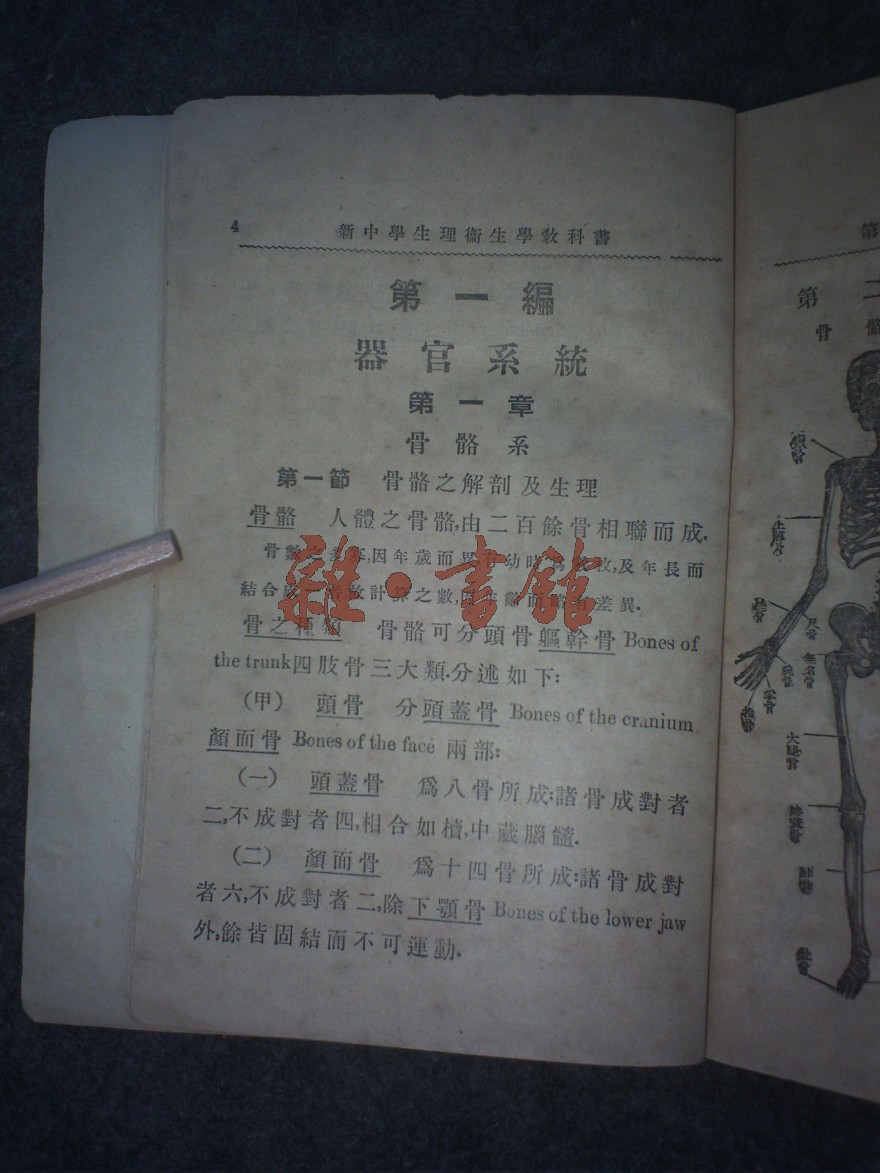 4 新中學生理衞生學教科書
第一編
器官系統
第一章
骨骼系
第一節 骨骼之解剖及生理
骨骼 人體之骨骼,由二百餘骨相聯而成.
骨數之多寡,因年歲而異,在幼時爲數枚,及年長而
結合 故計算之數,因年齡而略有差異.
骨之種類 骨骼可分頭骨軀幹骨 Bones of
the trunk四肢骨三大類.分述如下:
(甲) 頭骨 分頭蓋骨 Bones of the cranium
顏面骨 Bones of the face 兩部:
(一) 頭蓋骨 爲八骨所成:諸骨成對者
二,不成對者四,相合如櫝,中藏腦髓.
(二) 顏面骨 爲十四骨所成:諸骨成對
者六,不成對者二,除下顎骨 Bones of the lower jaw
外,餘皆固結而不可運動.
雜·書館
第
第二
骨骼
尺骨
無名骨
掌骨
指骨
大腿骨